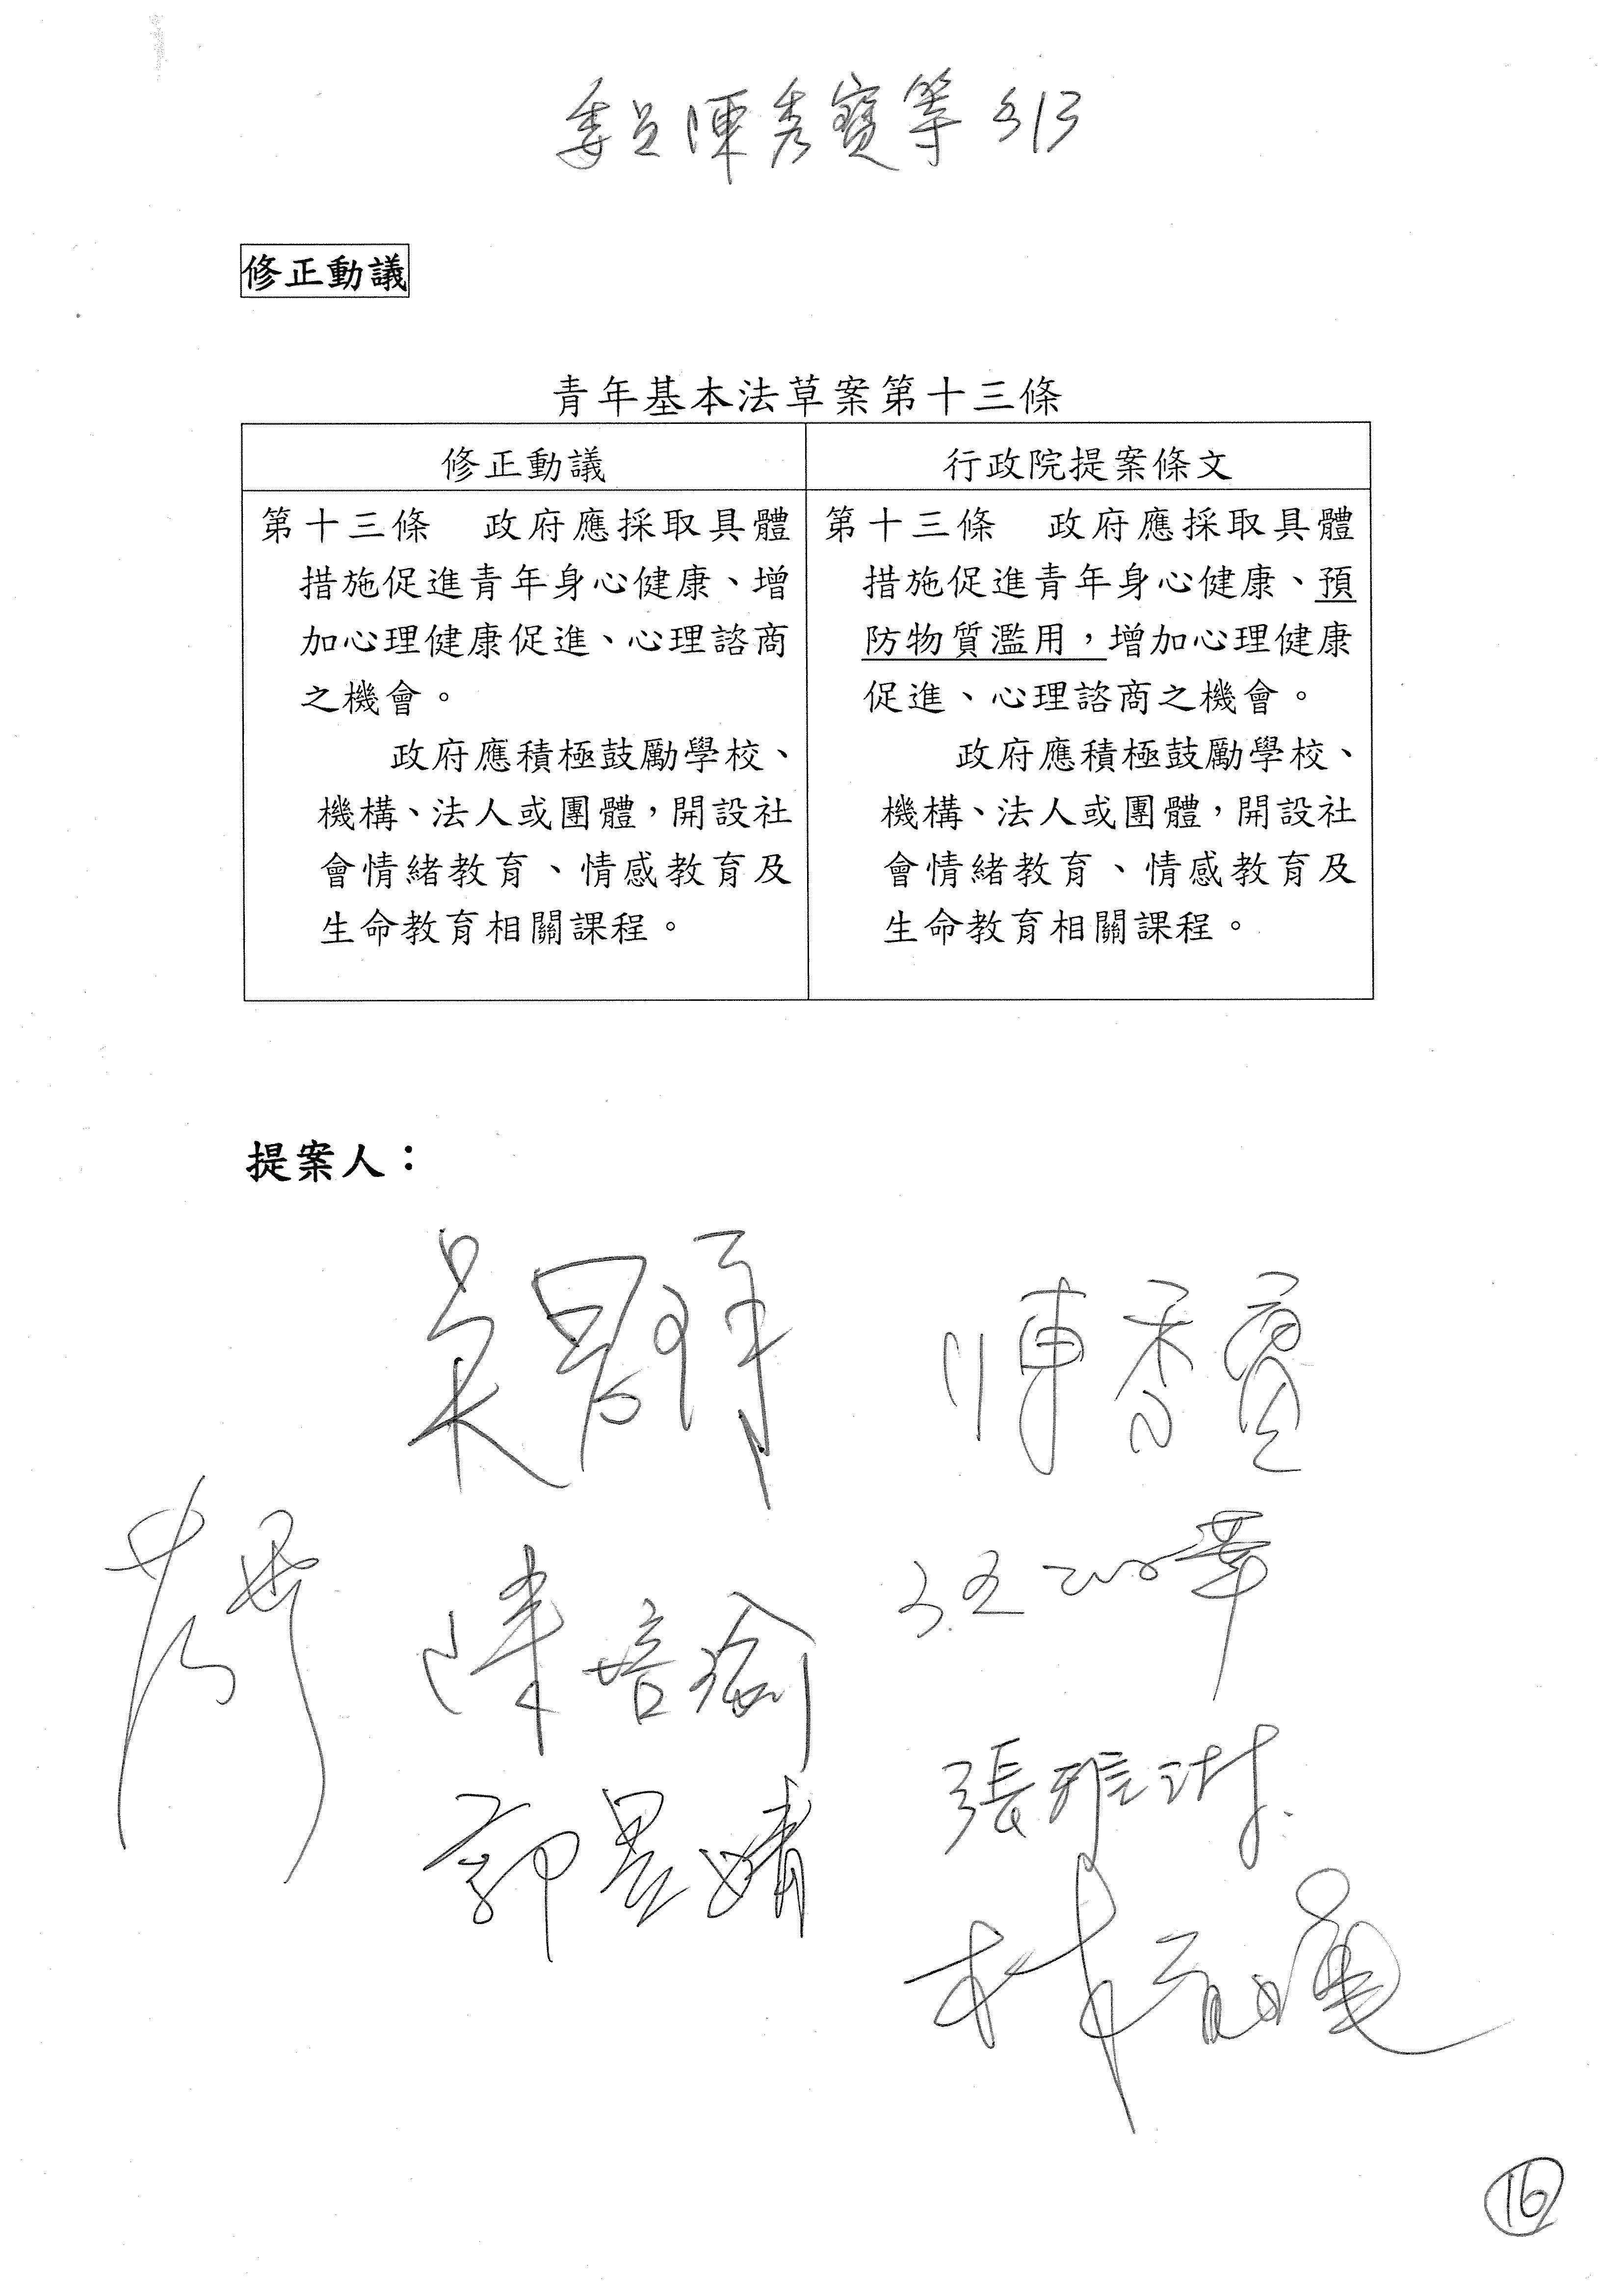 委員陳秀寶等 §13
修正動議
青年基本法草案第十三條
修正動議
第十三條　政府應採取具體
措施促進青年身心健康、增
加心理健康促進、心理諮商
之機會。
政府應積極鼓勵學校、
機構、法人或團體，開設社
會情緒教育、情感教育及
生命教育相關課程。
行政院提案條文
第十三條　政府應採取具體
措施促進青年身心健康、預
防物質濫用，增加心理健康
促進、心理諮商之機會。
政府應積極鼓勵學校、
機構、法人或團體，開設社
會情緒教育、情感教育及
生命教育相關課程。
提案人：
陳秀寶
陳培瑜
郭昱晴
張雅琳
16